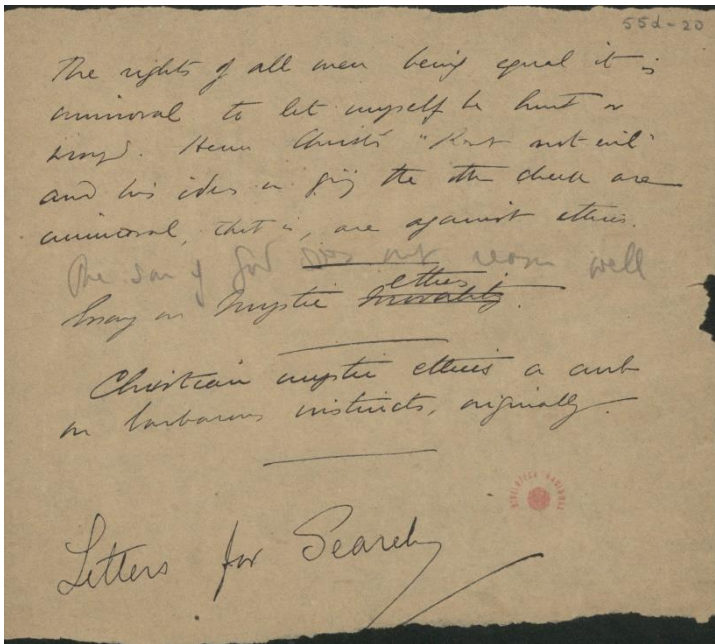 55d-20
The rights of all men being equal it is
immoral to let myself be hurt or
wronged. Hence Christ's "Resist not evil"
and his idea on giving the other cheek are
immoral, that is, are against ethics.
The son of God does not reason well
Essay on Mystic morality ethics.
Christian mystic ethics a curb
on barbarous instincts, originally.
Letters for Search
BIBLIOTECA NACIONAL